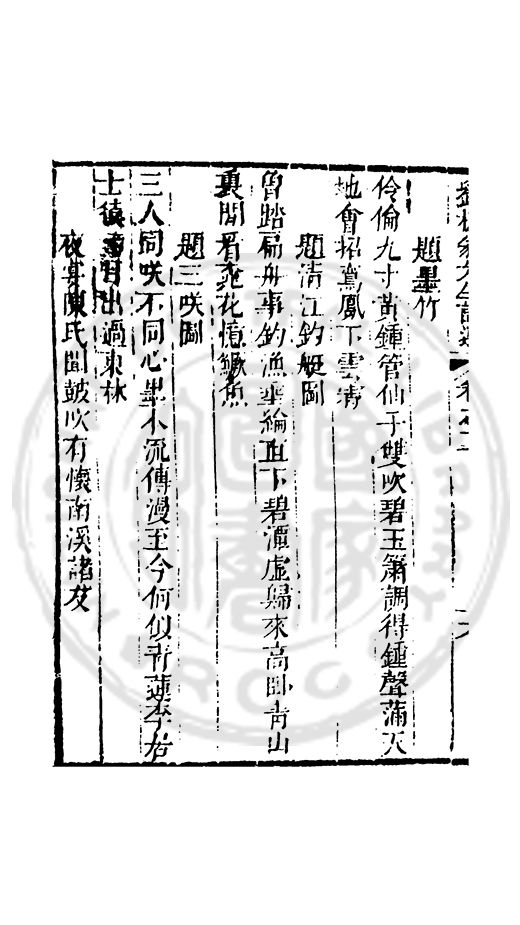 題墨竹
伶倫九寸黃鍾管仙子雙吹碧玉簫調得鍾聲滿天
地會招鸞鳳下雲霄
題清江釣艇圖
曾踏扁舟事釣漁垂綸直下碧潭虛歸來高臥青山
裏閒看桃花憶鱖魚
題三咲圖
三人同咲不同心墨本流傳漫至今何似青蓮李居
士猿 月出過東林
夜宴陳氏聞鼓吹有懷南溪諸友